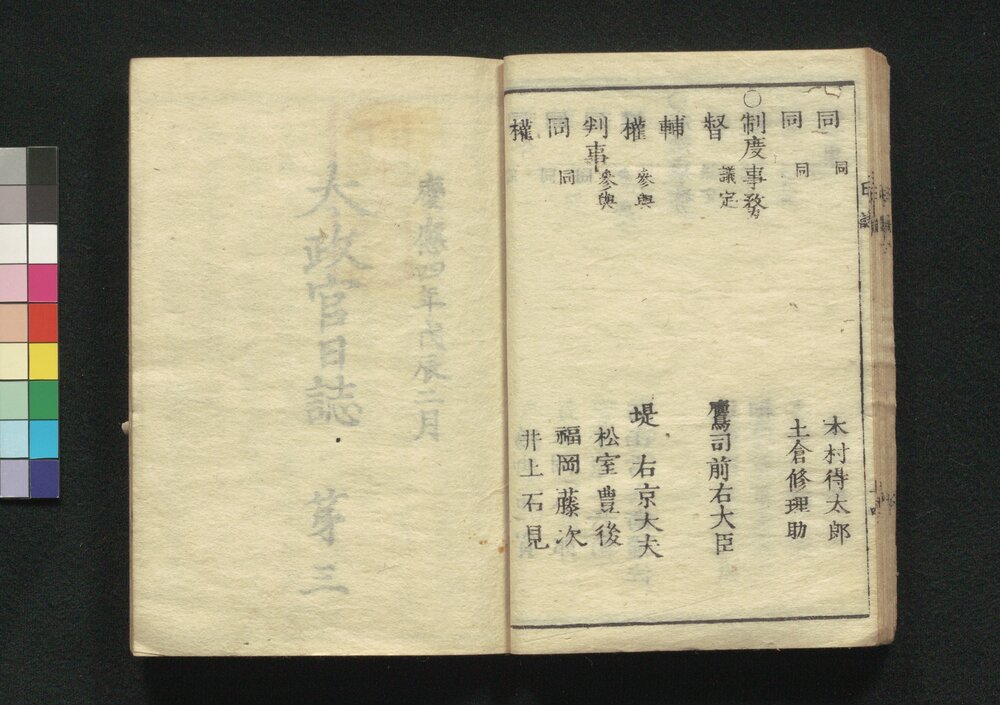 同 同 木村得太郎
同 同 土倉修理助
○制度事務
督 議定 鷹司前右大臣
輔
權 參與 堤右京大夫
判事 參與 松室豊後
同 同 福岡藤次
權 井上石見
慶應四年戊辰二月
太政官日誌 第三